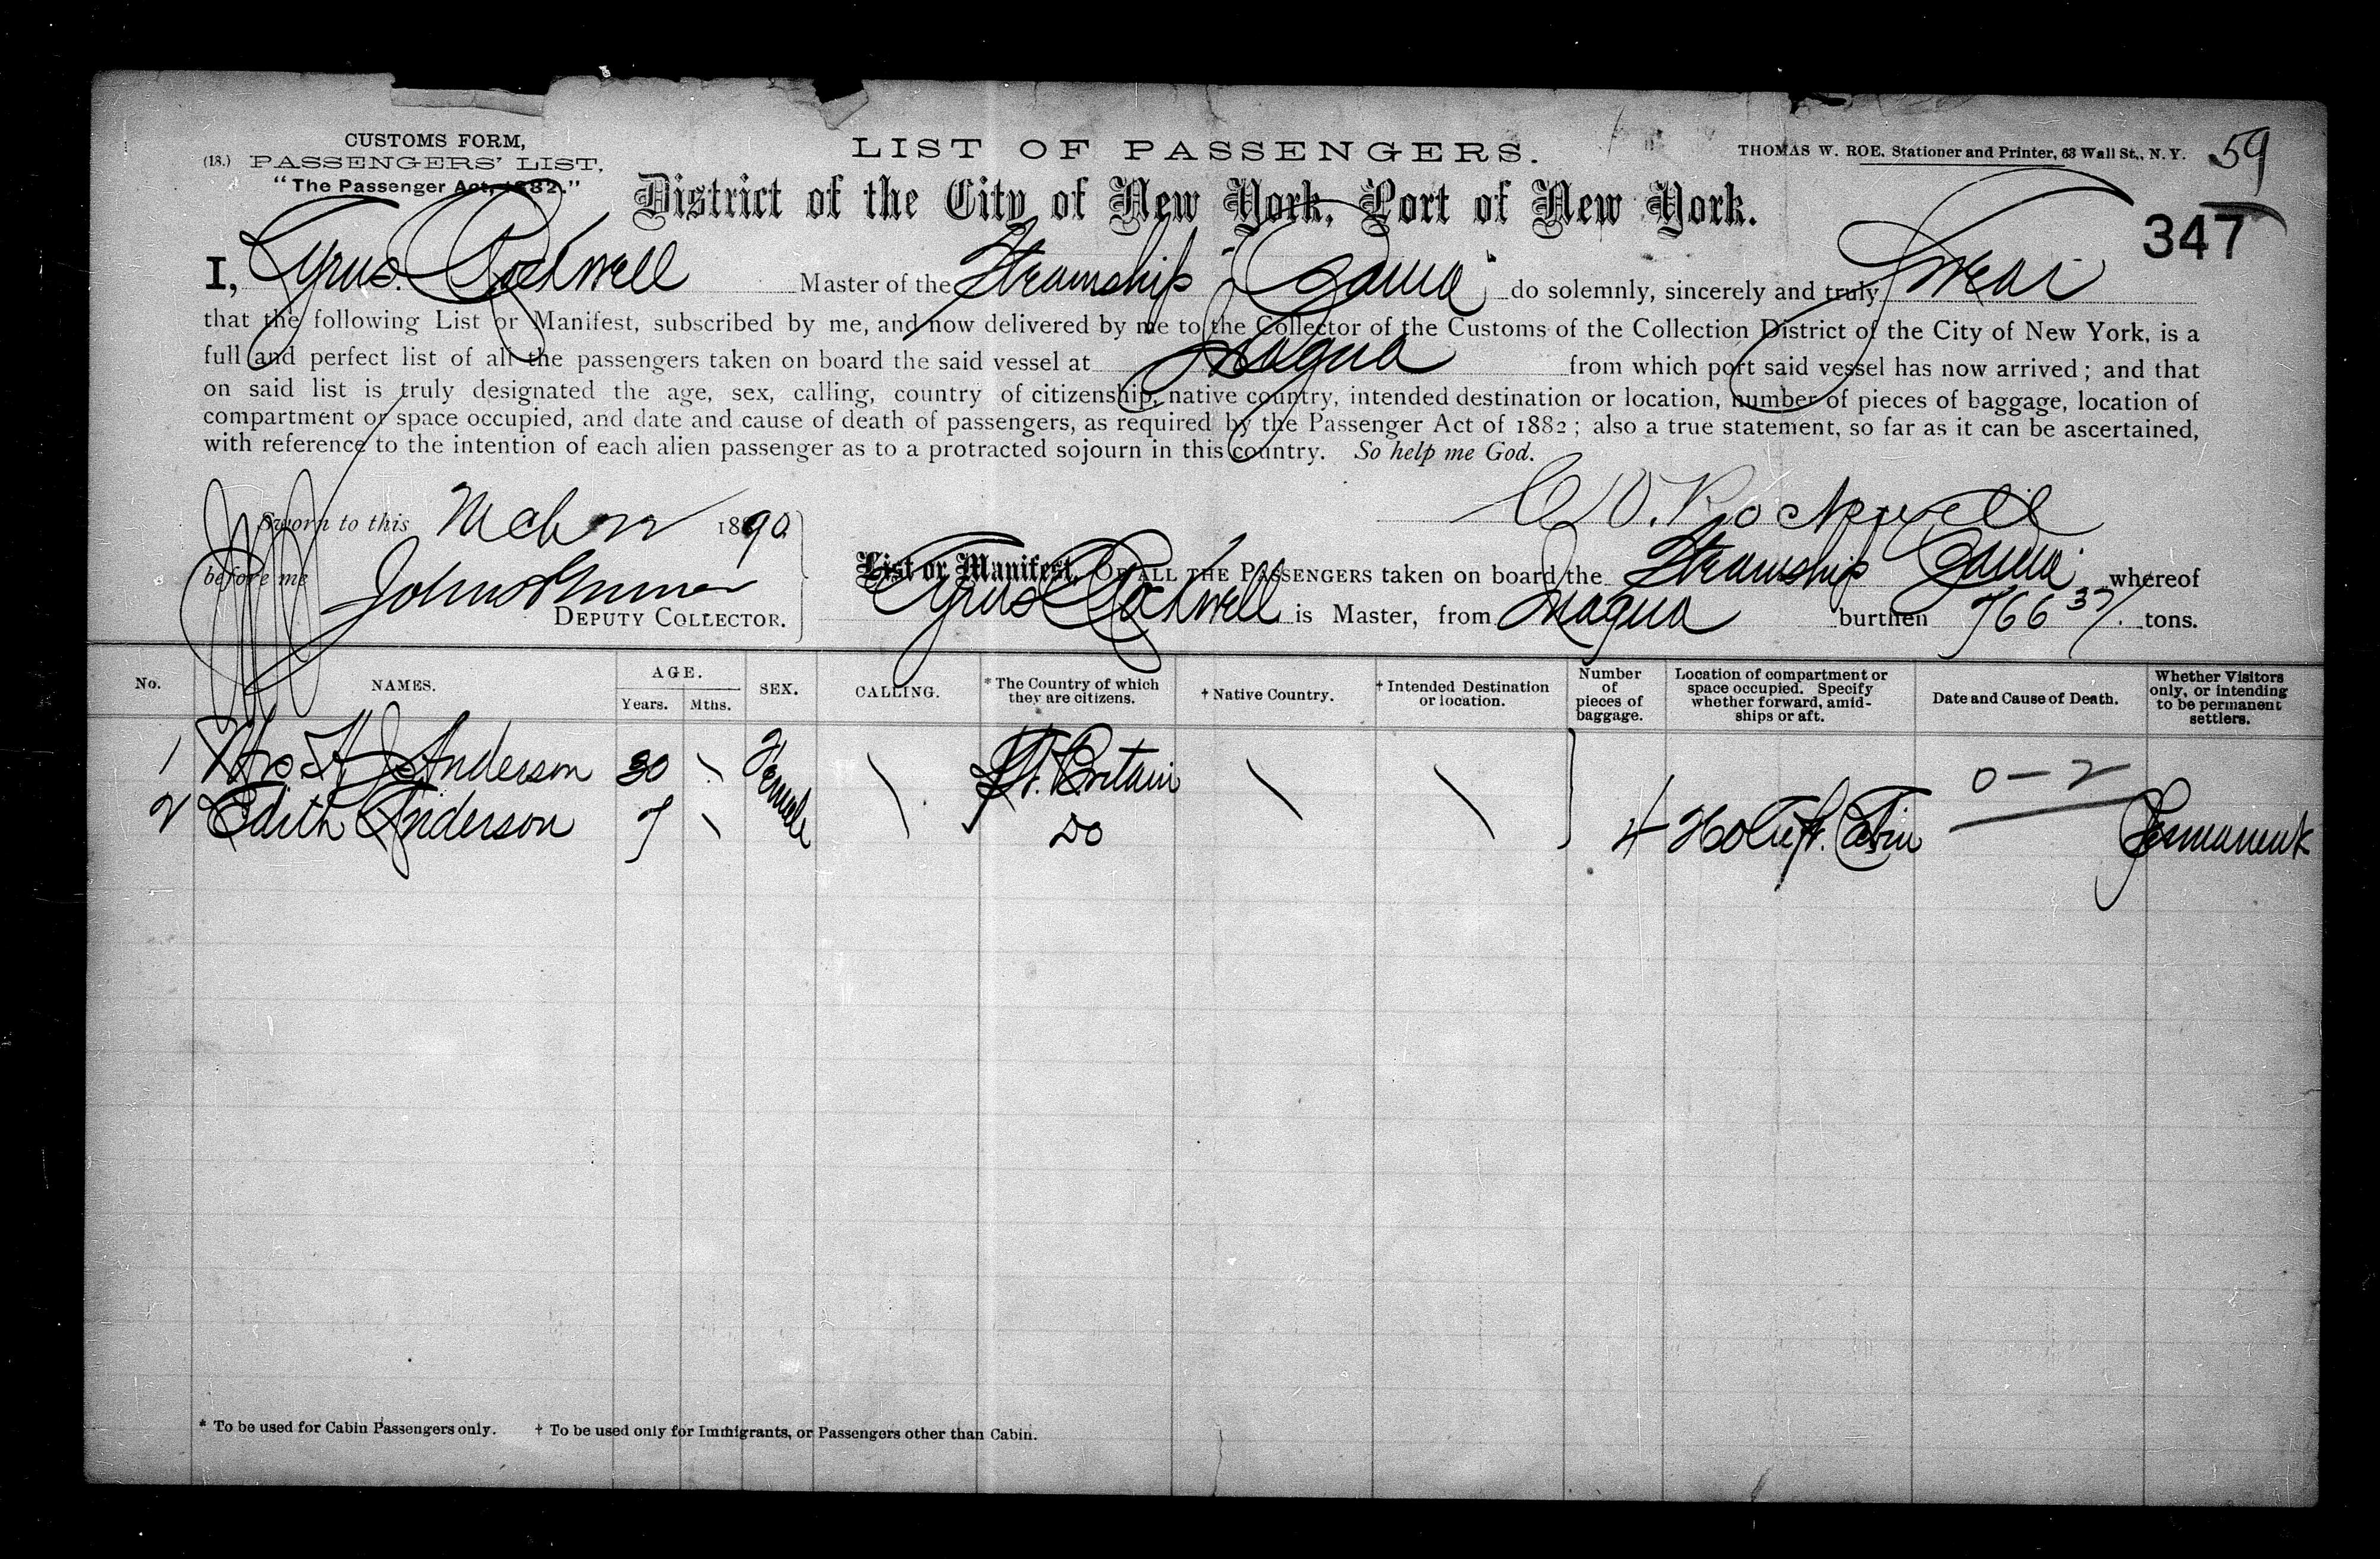 CUSTOMS FORM,
(18.) PASSENGERS' LIST,
"The Passenger Act, 1882."
LIST OF PASSENGERS.
THOMAS W. ROE, Stationer and Printer, 63 Wall St., N. Y.
59
District of the City of New York, Port of New York.
347
I, Cyrus Rockwell Master of the Steamship do solemnly, sincerely and truly Swear
that the following List or Manifest, subscribed by me, and now delivered by me to the Collector of the Customs of the Collection District of the City of New York, is a
full and perfect list of all the passengers taken on board the said vessel at from which port said vessel has now arrived; and that
on said list is truly designated the age, sex, calling, country of citizenship, native country, intended destination or location, number of pieces of baggage, location of
compartment or space occupied, and date and cause of death of passengers, as required by the Passenger Act of 1882; also a true statement, so far as it can be ascertained,
with reference to the intention of each alien passenger as to a protracted sojourn in this country. So help me God.
Sworn to this Mch 22 1890
C. D. Rockwell
before me
DEPUTY COLLECTOR.
List or Manifest, OF ALL THE PASSENGERS taken on board the Steamship whereof
Cyrus Rockwell is Master, from burthen 766 37/. tons.
No. NAMES. AGE. Years. Mths. SEX. CALLING. * The Country of which they are citizens. † Native Country. † Intended Destination or location. Number of pieces of baggage. Location of compartment or space occupied. Specify whether forward, amidships or aft. Date and Cause of Death. Whether Visitors only, or intending to be permanent settlers.
1 Mrs H J Anderson 30 \ Female \ Gt. Britain \ \ 0-2
2 Edith Anderson 7 \ Do 4 Cabin Permanent
* To be used for Cabin Passengers only. † To be used only for Immigrants, or Passengers other than Cabin.